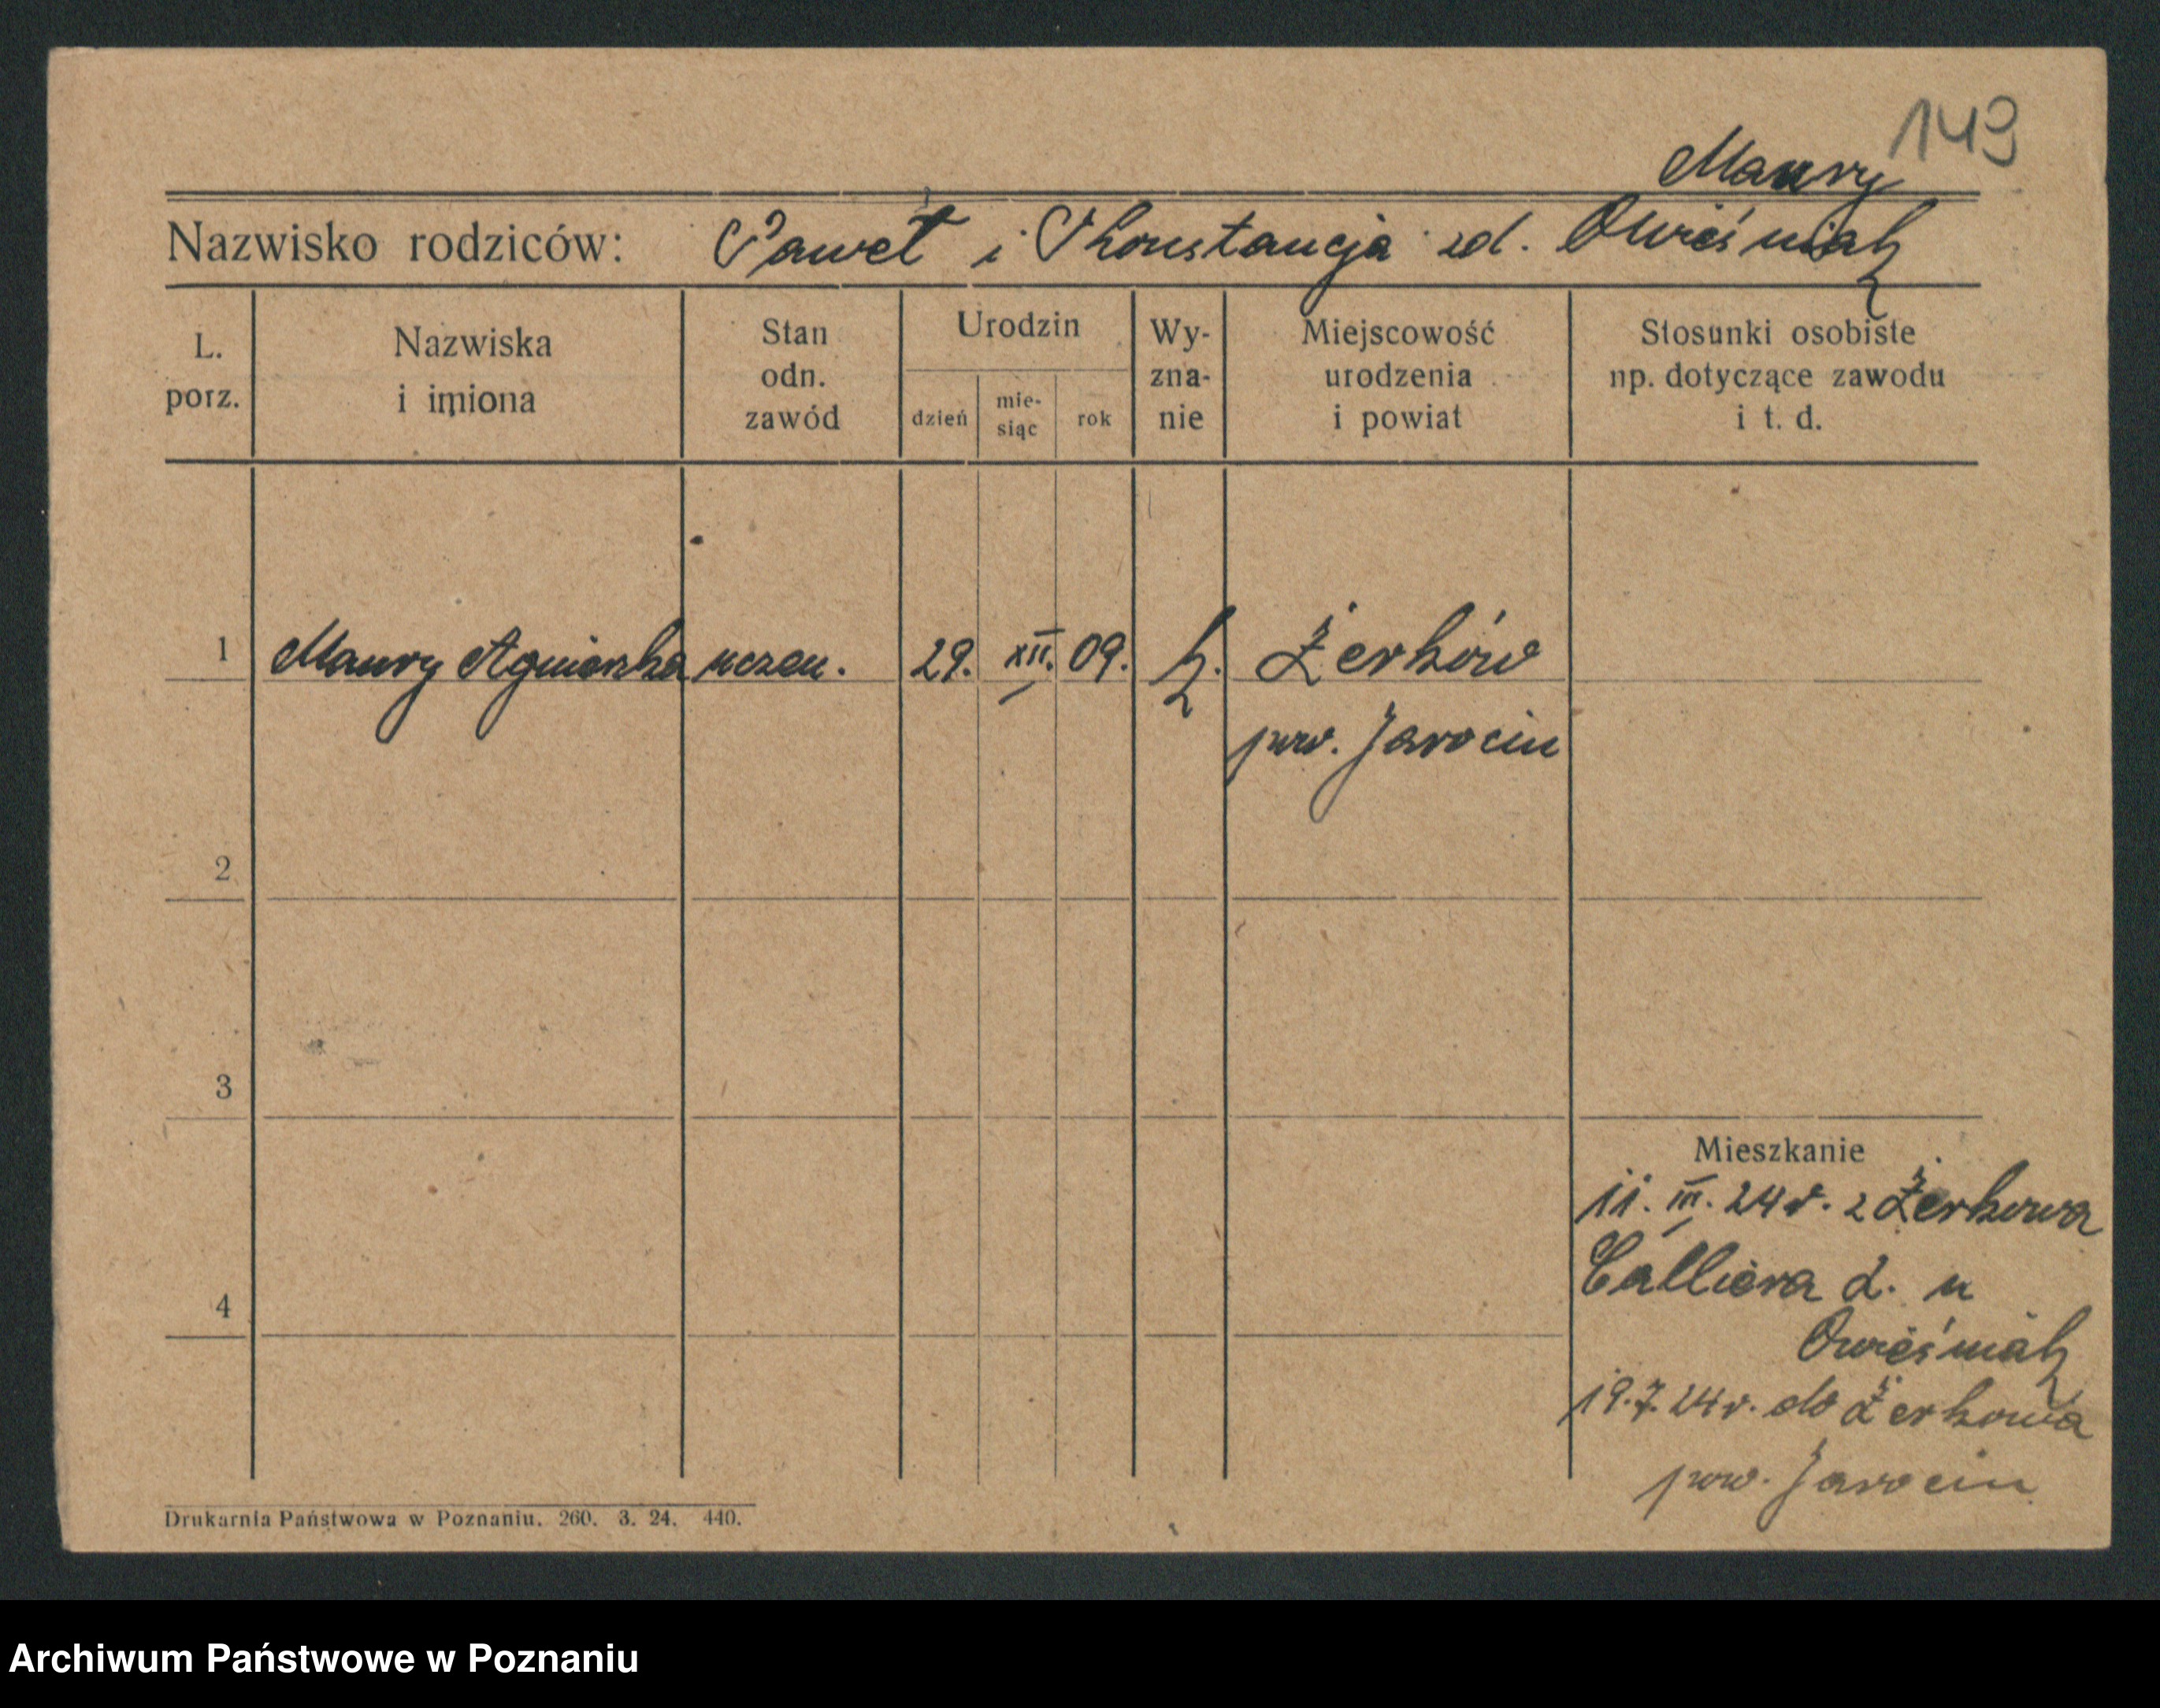 149
Maury
Nazwisko rodziców: Paweł i Khonstancja zd. Owieśniak
L. porz.
Nazwiska i imiona
Stan odn. zawód
Urodzin
dzień
mie-siąc
rok
Wy-zna-nie
Miejscowość urodzenia i powiat
Stosunki osobiste np. dotyczące zawodu i t. d.
1 Maury Agnieszka uczen. 29. XII. 09. k. Żerków
pow. Jarocin
2
3
Mieszkanie
11. III. 24 r. z Żerkowa
4 Calliera 2. u
Owieśniak
19.7.24 r. do Żerkowa
pow. Jarocin
Drukarnia Państwowa w Poznaniu. 260. 3. 24. 440.
Archiwum Państwowe w Poznaniu